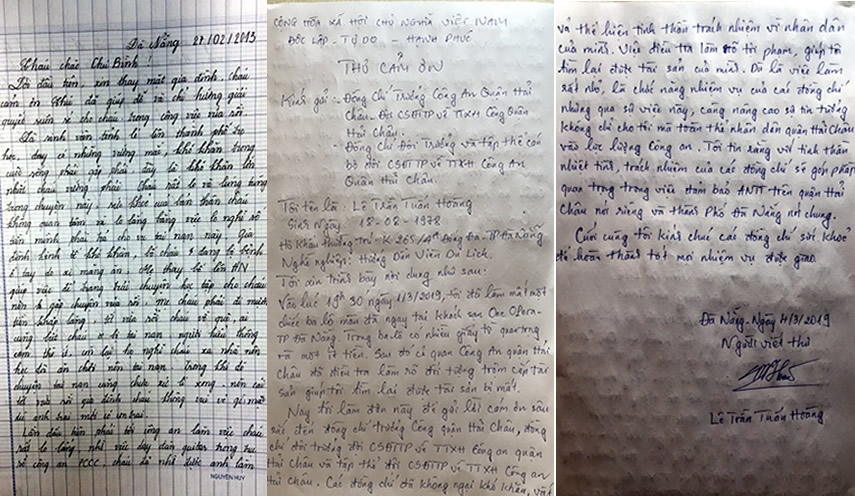 Đà Nẵng 27/02/2013
Cháu chào Chú Bình!
Lời đầu tiên, xin thay mặt gia đình, cháu
cảm ơn chú đã giúp đỡ và chỉ hướng giải
quyết vấn đề cho cháu trong công việc vừa rồi.
Là sinh viên tỉnh lẻ lên thành phố trọ
học, dạy có những vướng mắt, khó khăn trong
cuộc sống phải gặp phải đây là khó khăn lớn
nhất cháu vướng phải. Cháu rất lo và lúng túng
trong chuyện này, sức khoẻ của bản thân cháu
không quan tâm vì lo lắng
mình phải
đình kinh tế khó khăn, bố cháu đang bị bệnh
Mẹ thay bố lên ĐN
giúp việc để trang trải chuyện học tập cho cháu
nên khi gặp chuyện vừa rồi mẹ cháu phải đi mượn
tiền khắp
người hiểu thông
cảm thì ít
học đã ăn chơi nên tai nạn. Trong khi đó
chuyện tai nạn cũng chưa xử lí xong. nên cái
tết vừa rồi gia đình cháu không vui vẻ gì mặt
Lần đầu tiên phải tới công an làm việc cháu
rất lo lắng, nhờ việc dạy đàn guitar trong
sở công an PCCC, cháu đã nhờ được anh Lâm
NGUYEN HUY
CỘNG HÒA XÃ HỘI CHỦ NGHĨA VIỆT NAM
ĐỘC LẬP - TỰ DO - HẠNH PHÚC
THƯ CẢM ƠN
Kính gửi: - Đồng Chí Trưởng Công An Quận Hải
Châu - Đội CSĐTTP về TTXH Công Quận
Hải Châu.
- Đồng Chí Đội Trưởng và tập thể cán
bộ đội CSĐTTP về TTXH Công An
Quận Hải Châu.
Tôi tên là: Lê Trần Tuấn Hoàng
Sinh Ngày: 18-02-1978
Hộ Khẩu thường trú: K 265/ Đống Đa - TP Đà Nẵng
Nghề nghiệp: Hướng Dẫn Viên Du Lịch.
Tôi xin trình bày nội dung như sau:
Vào lúc 19h 30 ngày 1/3/2019, tôi đã làm mất một
chiếc ba lô màu đã ngay tại khách sạn One Opera-
TP Đà Nẵng. Trong ba lô có nhiều giấy tờ quan trọng
và một ít tiền. Sau đó cơ quan Công An quận Hải
Châu đã điều tra làm rõ đối tượng trộm cắp tài
sản giúp tôi tìm lại được tài sản bị mất.
Nay tôi làm đơn này để gửi lời cám ơn sâu
sắc đến đồng chí trưởng Công quận Hải Châu, đồng
chí đội trưởng đội CSĐTTP về TTXH Công an quận
Hải Châu và tập thể đội CSĐTTP về TTXH Công an
Hải Châu. Các đồng chí đã không ngại khó khăn, vất
vả thể hiện tinh thần trách nhiệm vì nhân dân
của mình. Việc điều tra làm rõ tội phạm, giúp tôi
tìm lại được tài sản của mình. Đó là việc làm
rất nhỏ, là chức năng nhiệm vụ của các đồng chí
nhưng qua sự việc này, càng nâng cao sự tin tưởng
không chỉ cho tôi mà toàn thể nhân dân quận Hải Châu
vào lực lượng Công an. Tôi tin rằng với tinh thần
nhiệt tình, trách nhiệm của các đồng chí sẽ góp phần
quan trọng trong việc đảm bảo ANTT trên quận Hải
Châu nói riêng và thành Phố Đà Nẵng nói chung.
Cuối cùng tôi kính chúc các đồng chí sức khoẻ
để hoàn thành tốt mọi nhiệm vụ được giao
Đà Nẵng - Ngày 4/3/2019
Người viết thư
Lê Trần Tuấn Hoàng